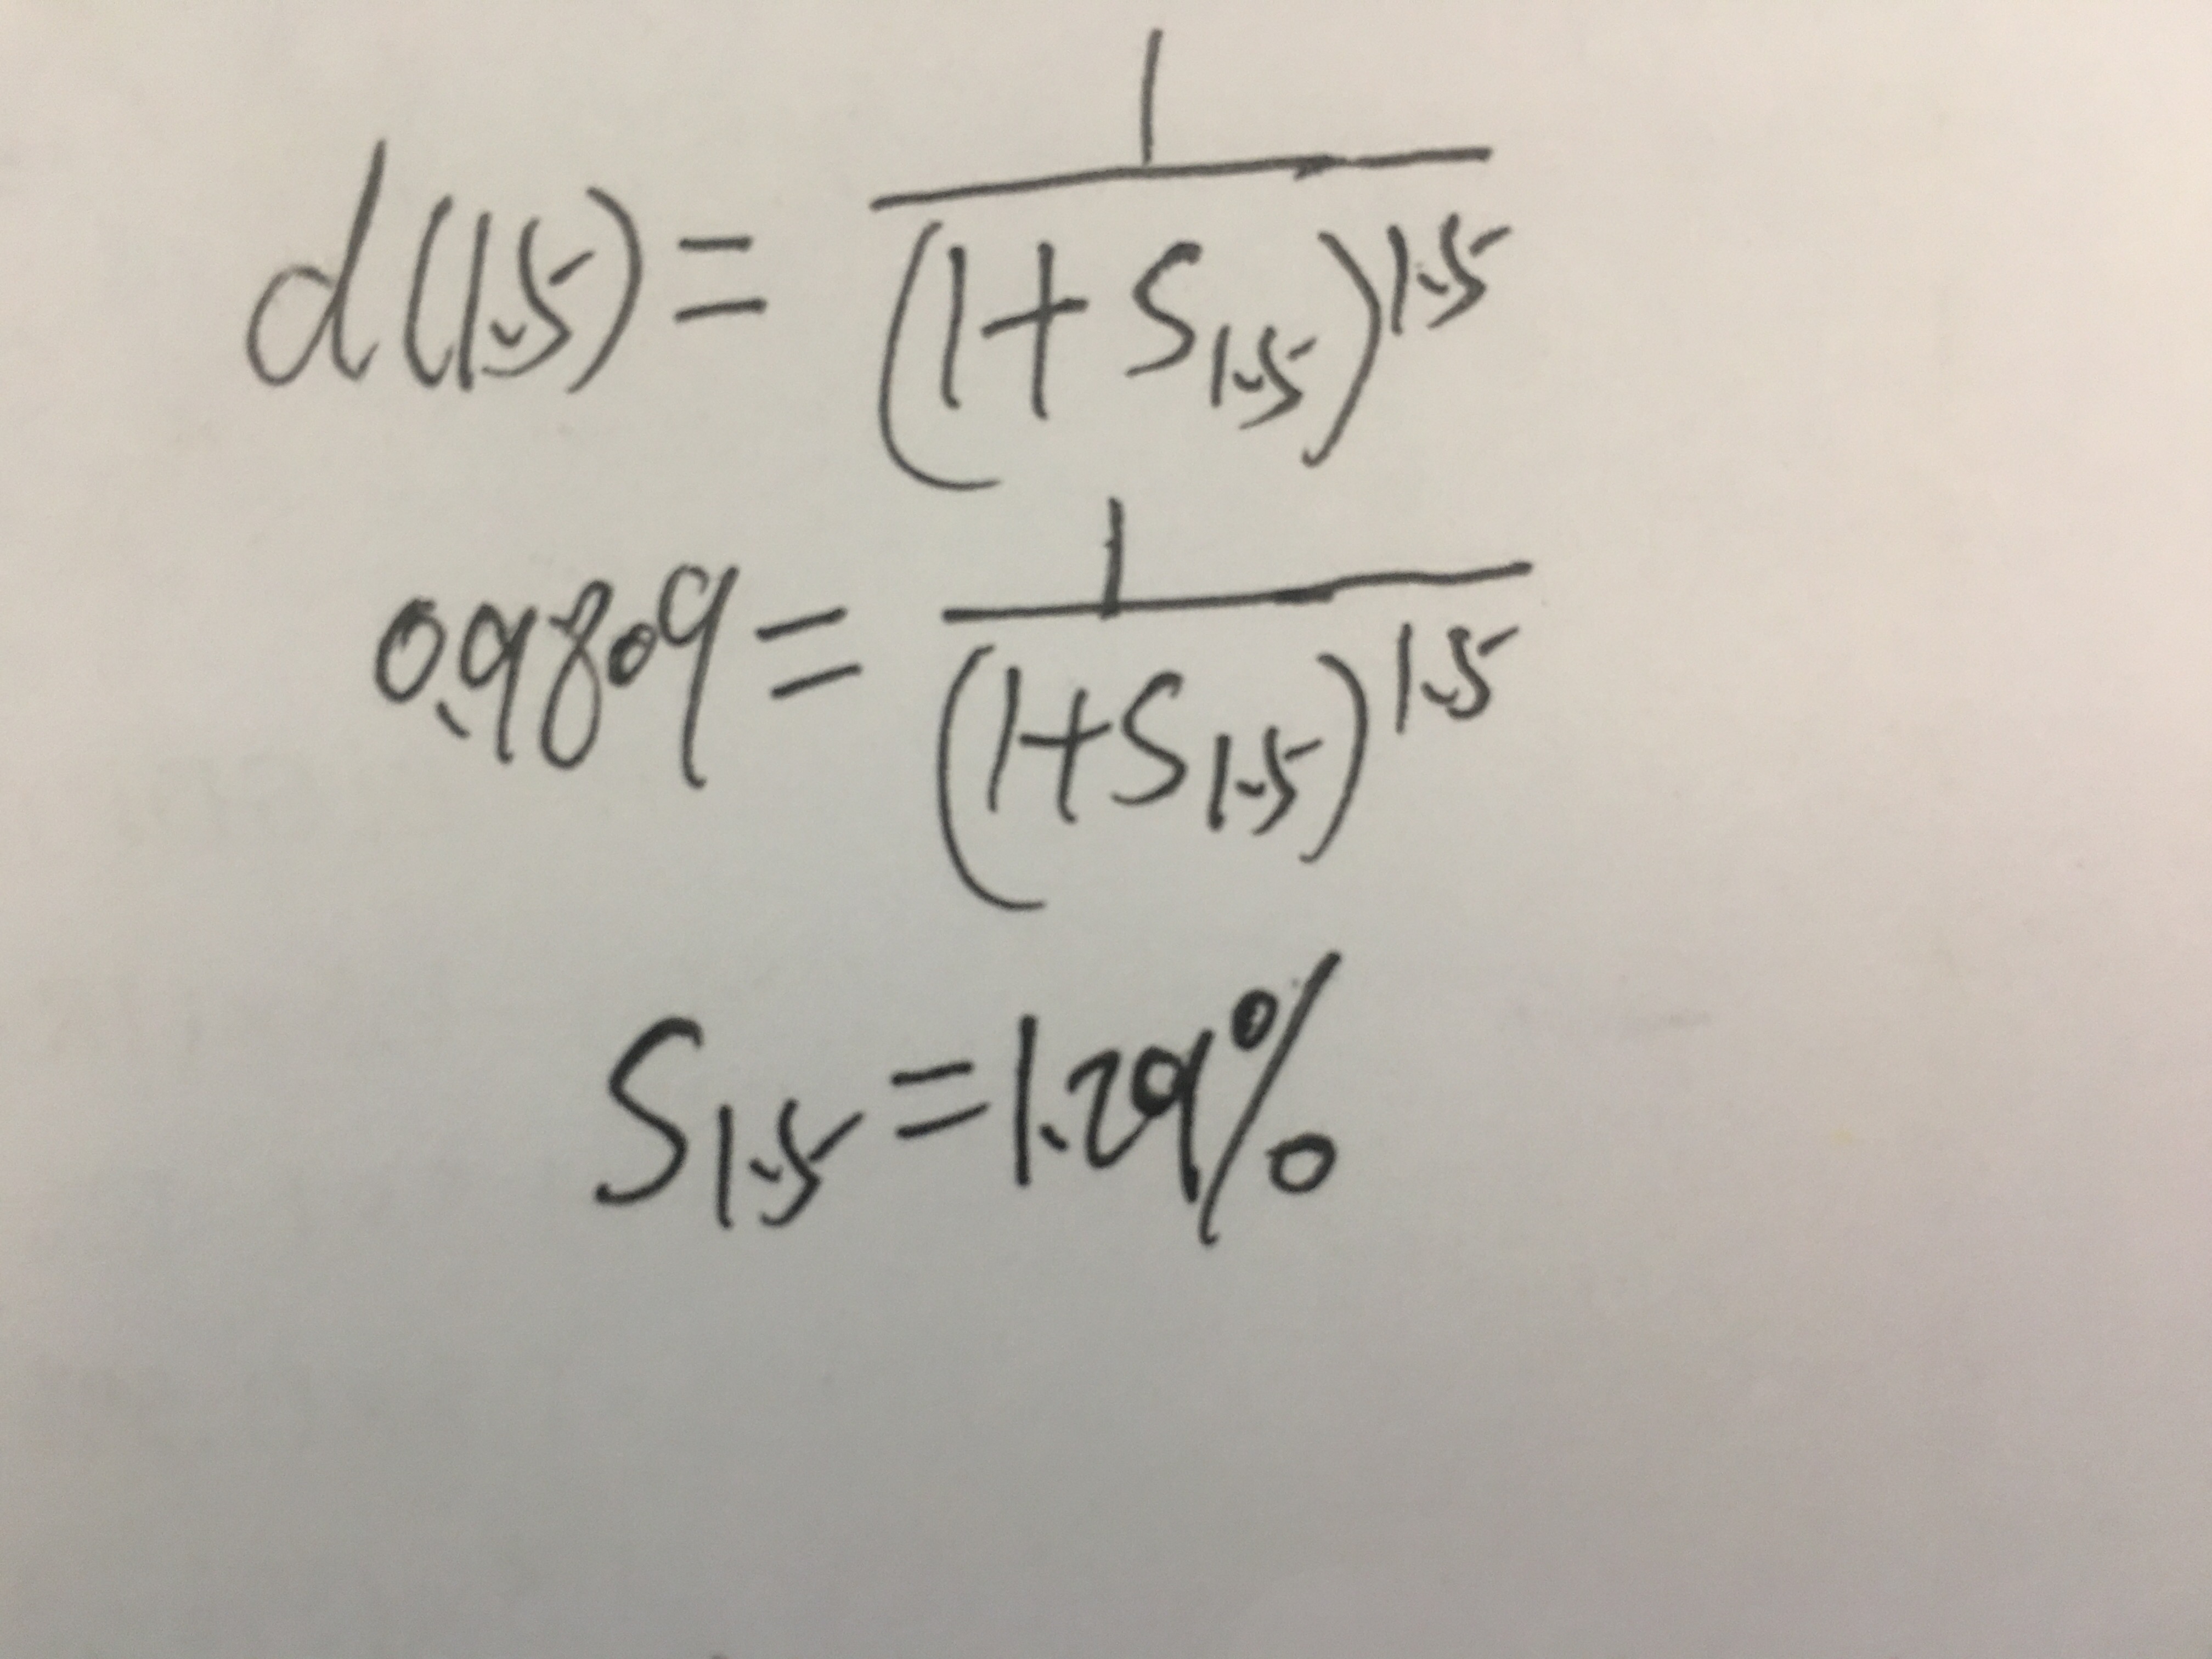 d(1.5) = 1/(1+S_{1.5})^{1.5}
0.9809 = 1/(1+S_{1.5})^{1.5}
S_{1.5} = 1.29%